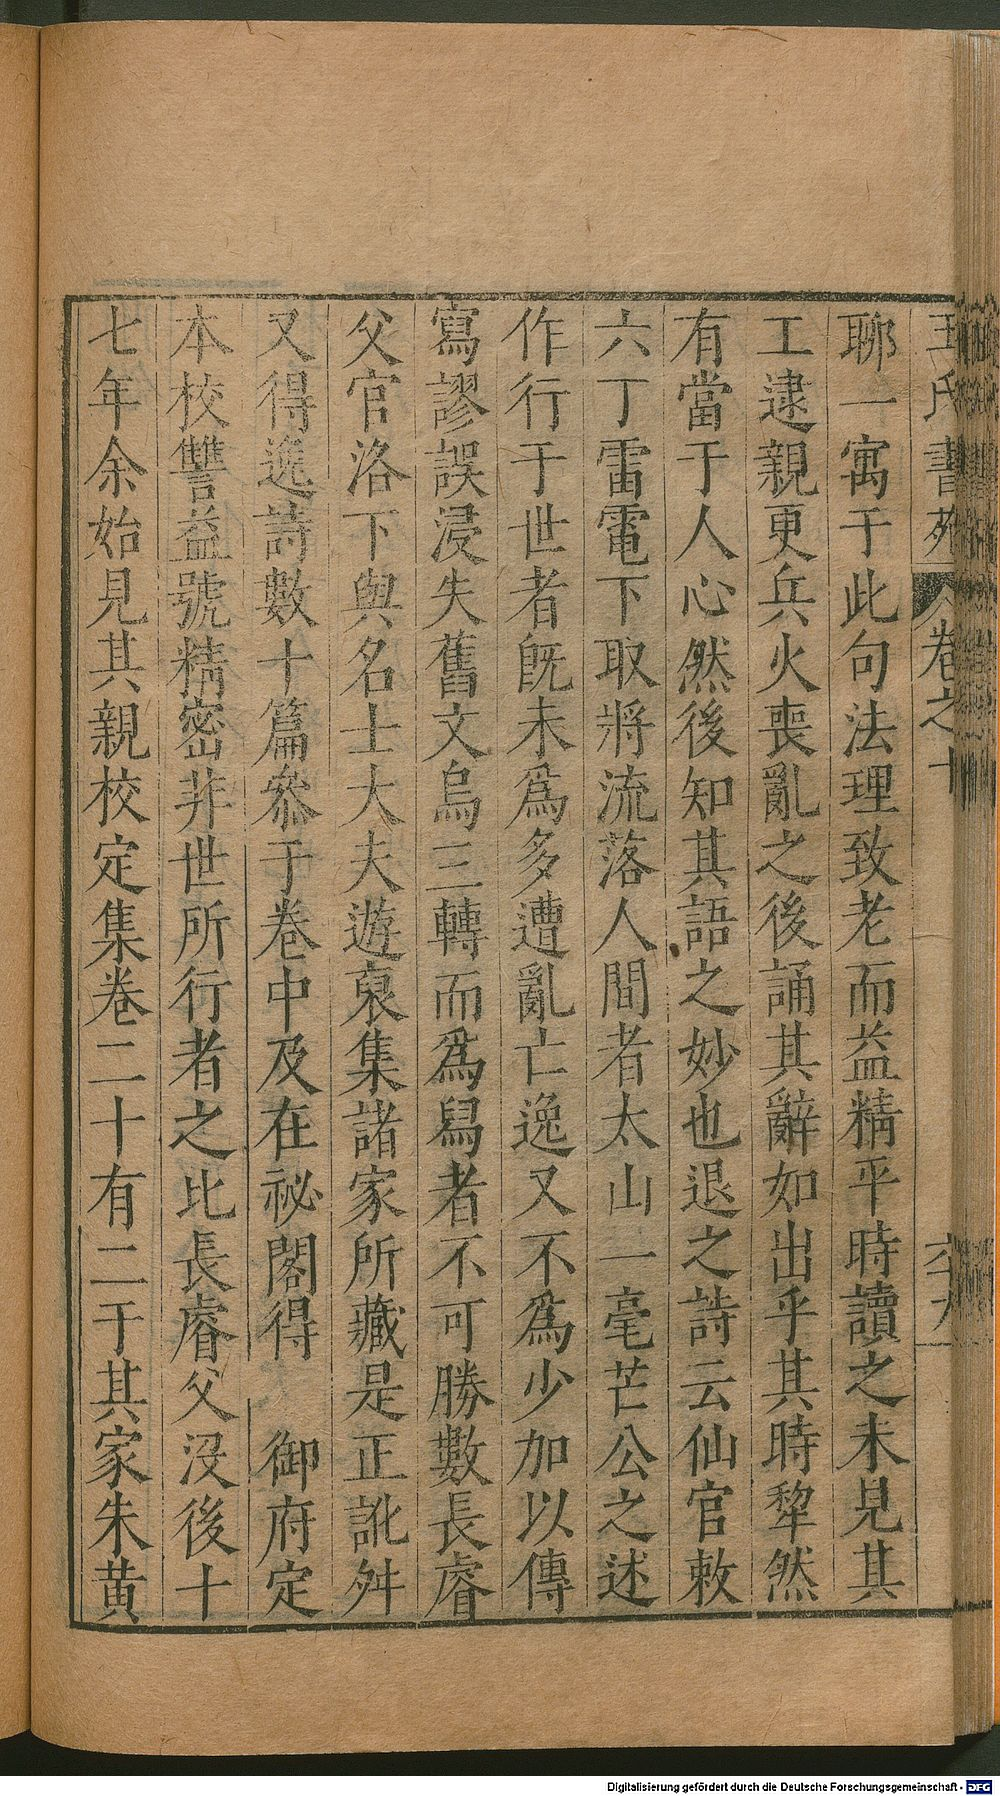 王氏書苑 卷之十 六十九
聊一寓于此句法理致老而益精平時讀之未見其
工逮親更兵火喪亂之後誦其辭如出乎其時犂然
有當于人心然後知其語之妙也退之詩云仙官敕
六丁雷電下取將流落人間者太山一毫芒公之述
作行于世者旣未爲多遭亂亡逸又不爲少加以傳
寫謬誤浸失舊文烏三轉而爲舄者不可勝數長睿
父官洛下與名士大夫遊裒集諸家所藏是正訛舛
又得逸詩數十篇叅于卷中及在祕閣得 御府定
本校讐益號精密非世所行者之比長睿父没後十
七年余始見其親校定集卷二十有二于其家朱黃
Digitalisierung gefördert durch die Deutsche Forschungsgemeinschaft - DFG